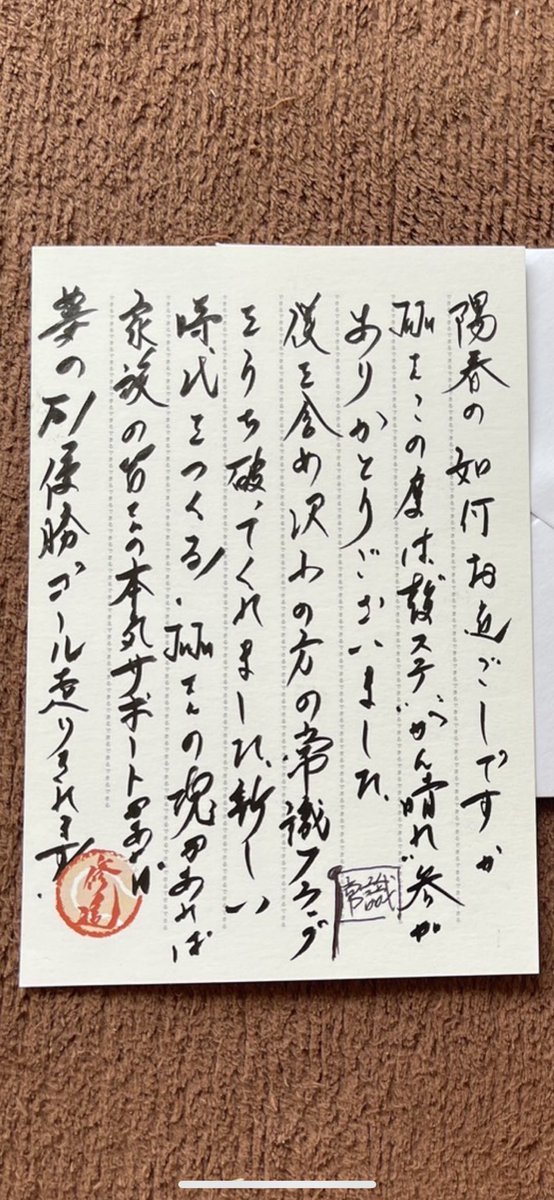 陽春の如何お過ごしですか
さんこの度は護ステ"がん晴れ"参加
ありがとうございました。
僕を含め沢山の方の常識フラッグ
常識
をうち破ってくれました。新しい
時代をつくる!さんの魂があれば
家族の皆さんの本気サポートがあれば
夢の万優勝ゴール走りきれます!